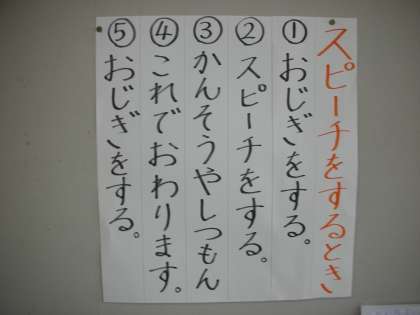 スピーチをするとき
①おじぎをする。
②スピーチをする。
③かんそうやしつもん
④これでおわります。
⑤おじぎをする。